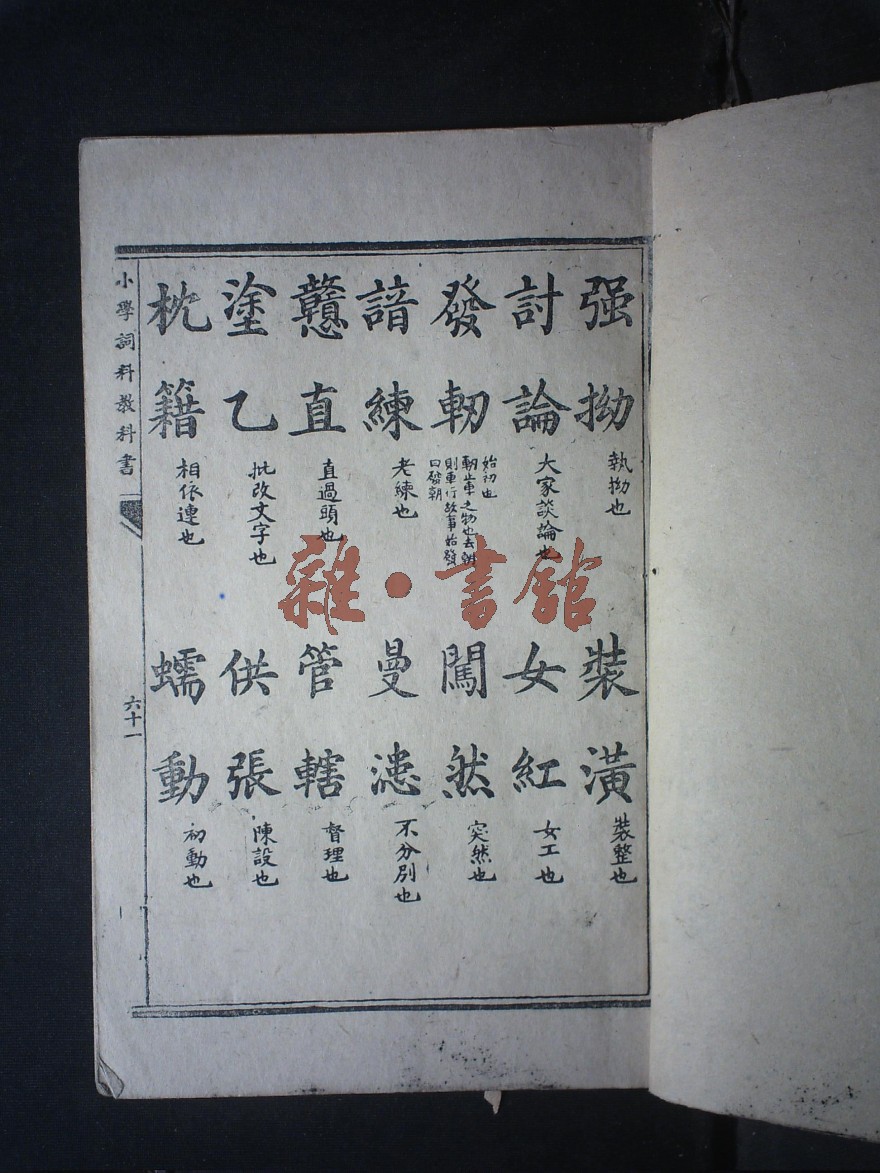 强拗
執拗也
裝潢
裝整也
討論
大家談論也
女紅
女工也
發軔
始初也
軔止車之物也去軔
則車行故事始發
曰發軔
闖然
突然也
諳練
老練也
曼漶
不分別也
戇直
直過頭也
管轄
督理也
塗乙
批改文字也
供張
陳設也
枕籍
相依連也
蠕動
初動也
小學詞料教科書
六十一
雜·書館